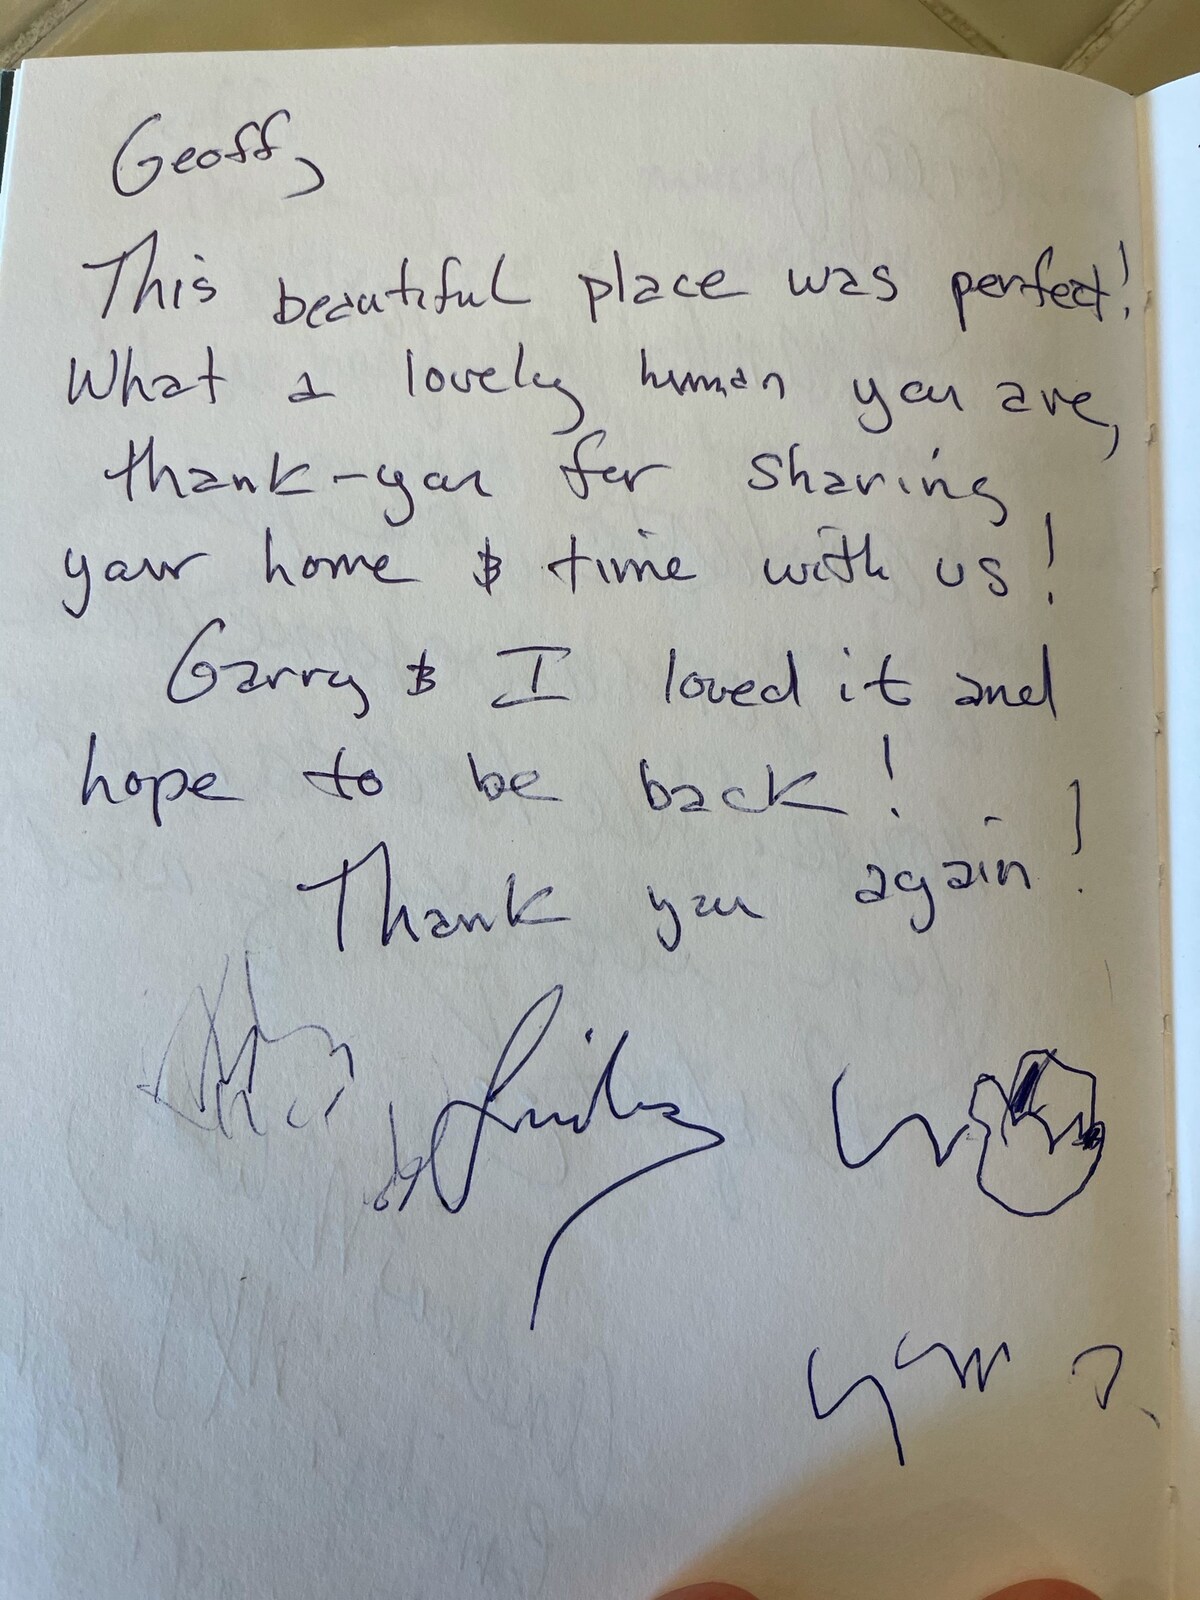 Geoff,
This beautiful place was perfect!
What a lovely human you are,
thank-you for sharing
your home & time with us!
Garry & I loved it and
hope to be back!
Thank you again!